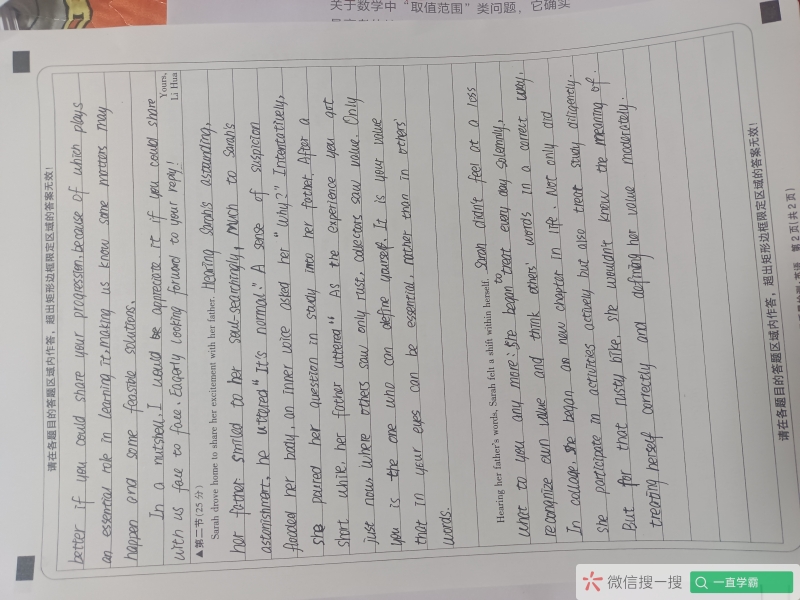 关于数学中“取值范围”类问题，它确实
请在各题目的答题区域内作答，超出矩形边框限定区域的答案无效！
better if you could share your progression, because of which plays
an essential role in learning it, making us know some matters may
happen and some feasible solutions.
In a nutshed, I would be appreciate it if you could share
with us face to face. Eagerly looking forward to your reply!
Yours,
Li Hua
▲第二节(25分)
Sarah drove home to share her excitement with her father. Hearing Sarah's astounding,
her father smiled to her soul-searchingly, much to Sarah's
astonishment, he uttared "It's normal." A sense of suspicion
flooded her body, an inner voice asked her "Why?" Intentatively,
she poured her question in study into her father. After a
short while, her father uttered "As the experience you got
just now, where others saw only rust, collectors saw value. Only
you is the one who can define yourself. It is your value
that in your eyes can be essential, rather than in others'
words.
Hearing her father's words, Sarah felt a shift within herself. Sarah didn't feel at a loss
what to you any more; she began to treat every day solemnly,
recongnize own value and think others' words in a correct way.
In collage, she began an new chapter in life. Not only did
she participate in activities actively but also treat study diligently.
But for that rusty bike, she wouldn't know the meaning of
treating herself correctly and defining her value moderately.
请在各题目的答题区域内作答，超出矩形边框限定区域的答案无效！
英语 第2页(共2页)
微信搜一搜
一直学霸